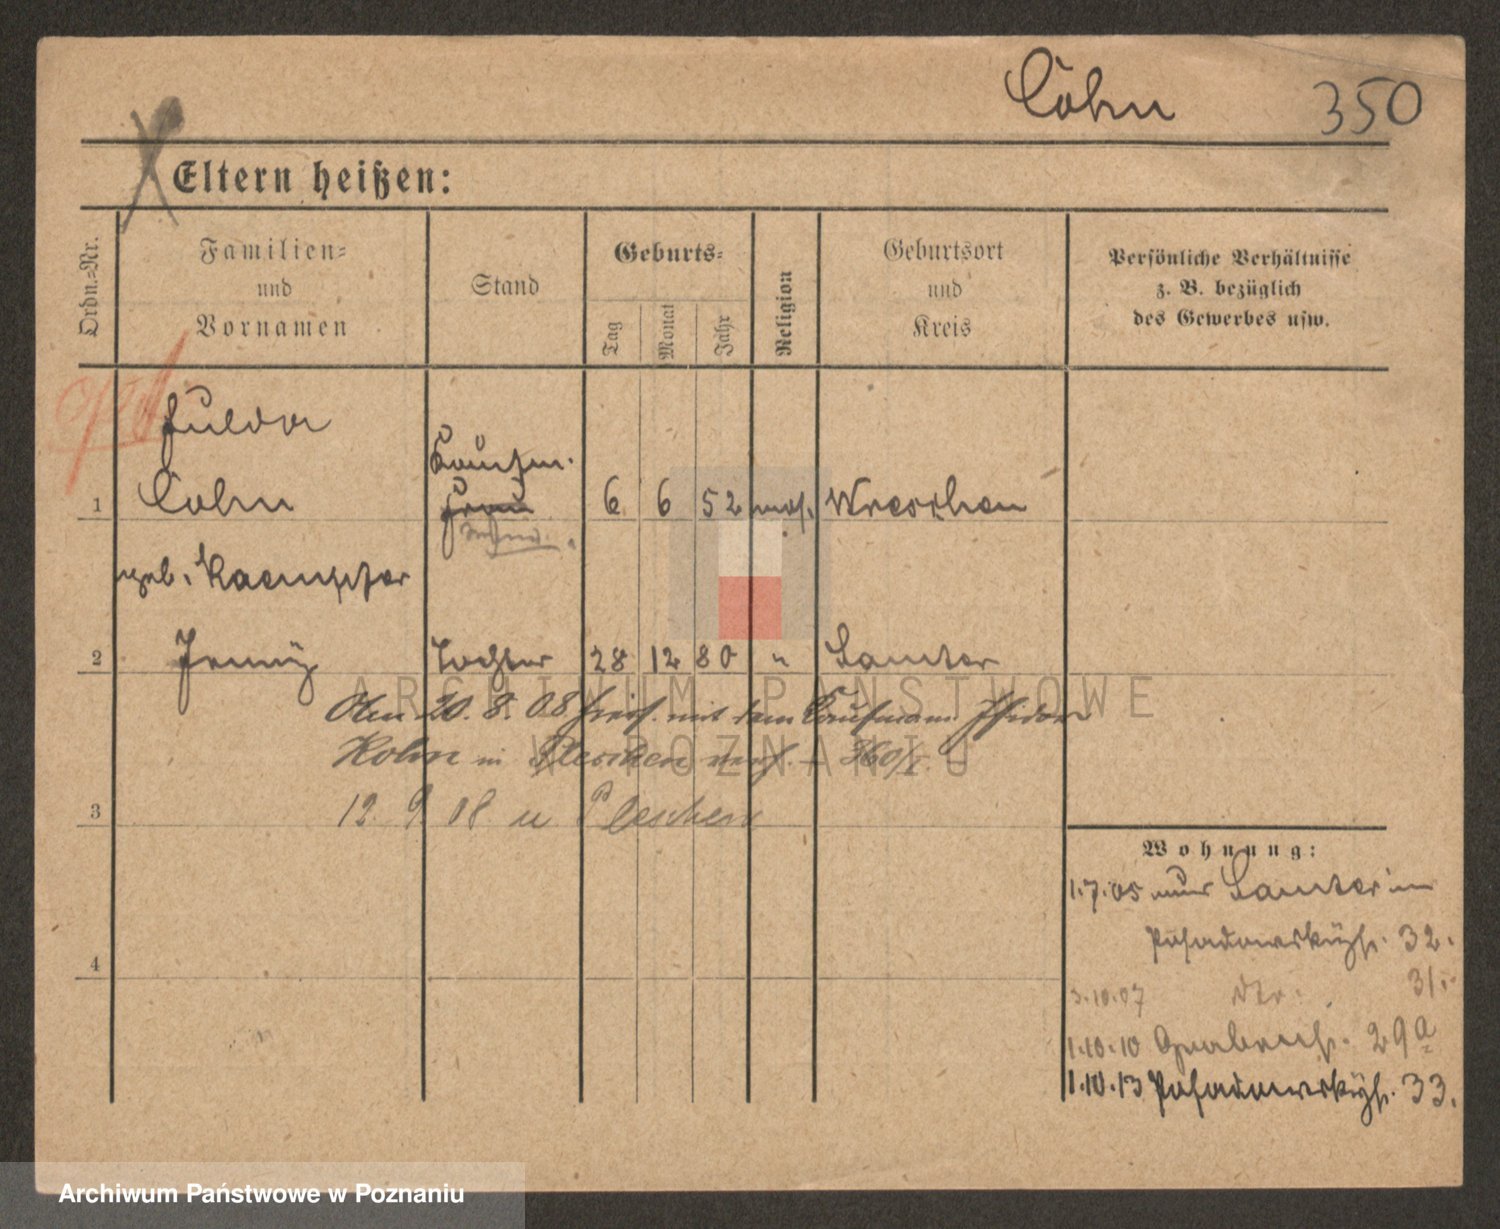 Cohn 350
Eltern heißen:
Ordn.-Nr.
Familien-
und
Vornamen
Stand
Geburts-
Tag
Monat
Jahr
Religion
Geburtsort
und
Kreis
Persönliche Verhältnisse
z. B. bezüglich
des Gewerbes usw.
Fulda
Kaufm.
1 Cohn Frau 6 6 52 mos. Wreschen
geb. Kaempfer
2 Jenny Tochter 28 12 80 " Samter
Am 20. 8. 08 mit dem Kaufmann Isidor
Kohn in Pleschen verh. 360/I.
12. 9. 08 n Pleschen
3
Wohnung:
1.7.05 Samter
Posadowskystr. 32.
4
3.10.07 dto. 31.
1.10.10 Grabenstr. 29a
1.10.13 Posadowskystr. 33.
ARCHIWUM PAŃSTWOWE
W POZNANIU
Archiwum Państwowe w Poznaniu